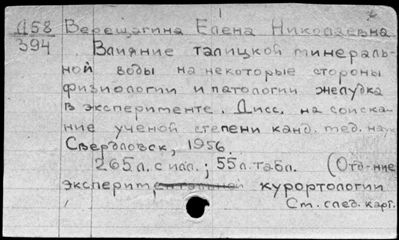 Д58 Верещагина Елена Николаевна
394
Влияние талицкой минераль-
ной воды на некоторые стороны
физиологии и патологии желудка
в эксперименте. Дисс. на соиска-
ние ученой степени канд. мед. наук
Свердловск, 1956.
265 л. с илл.; 55 л. табл. (Отд-ние
экспериментальной курортологии
См. след. карт.